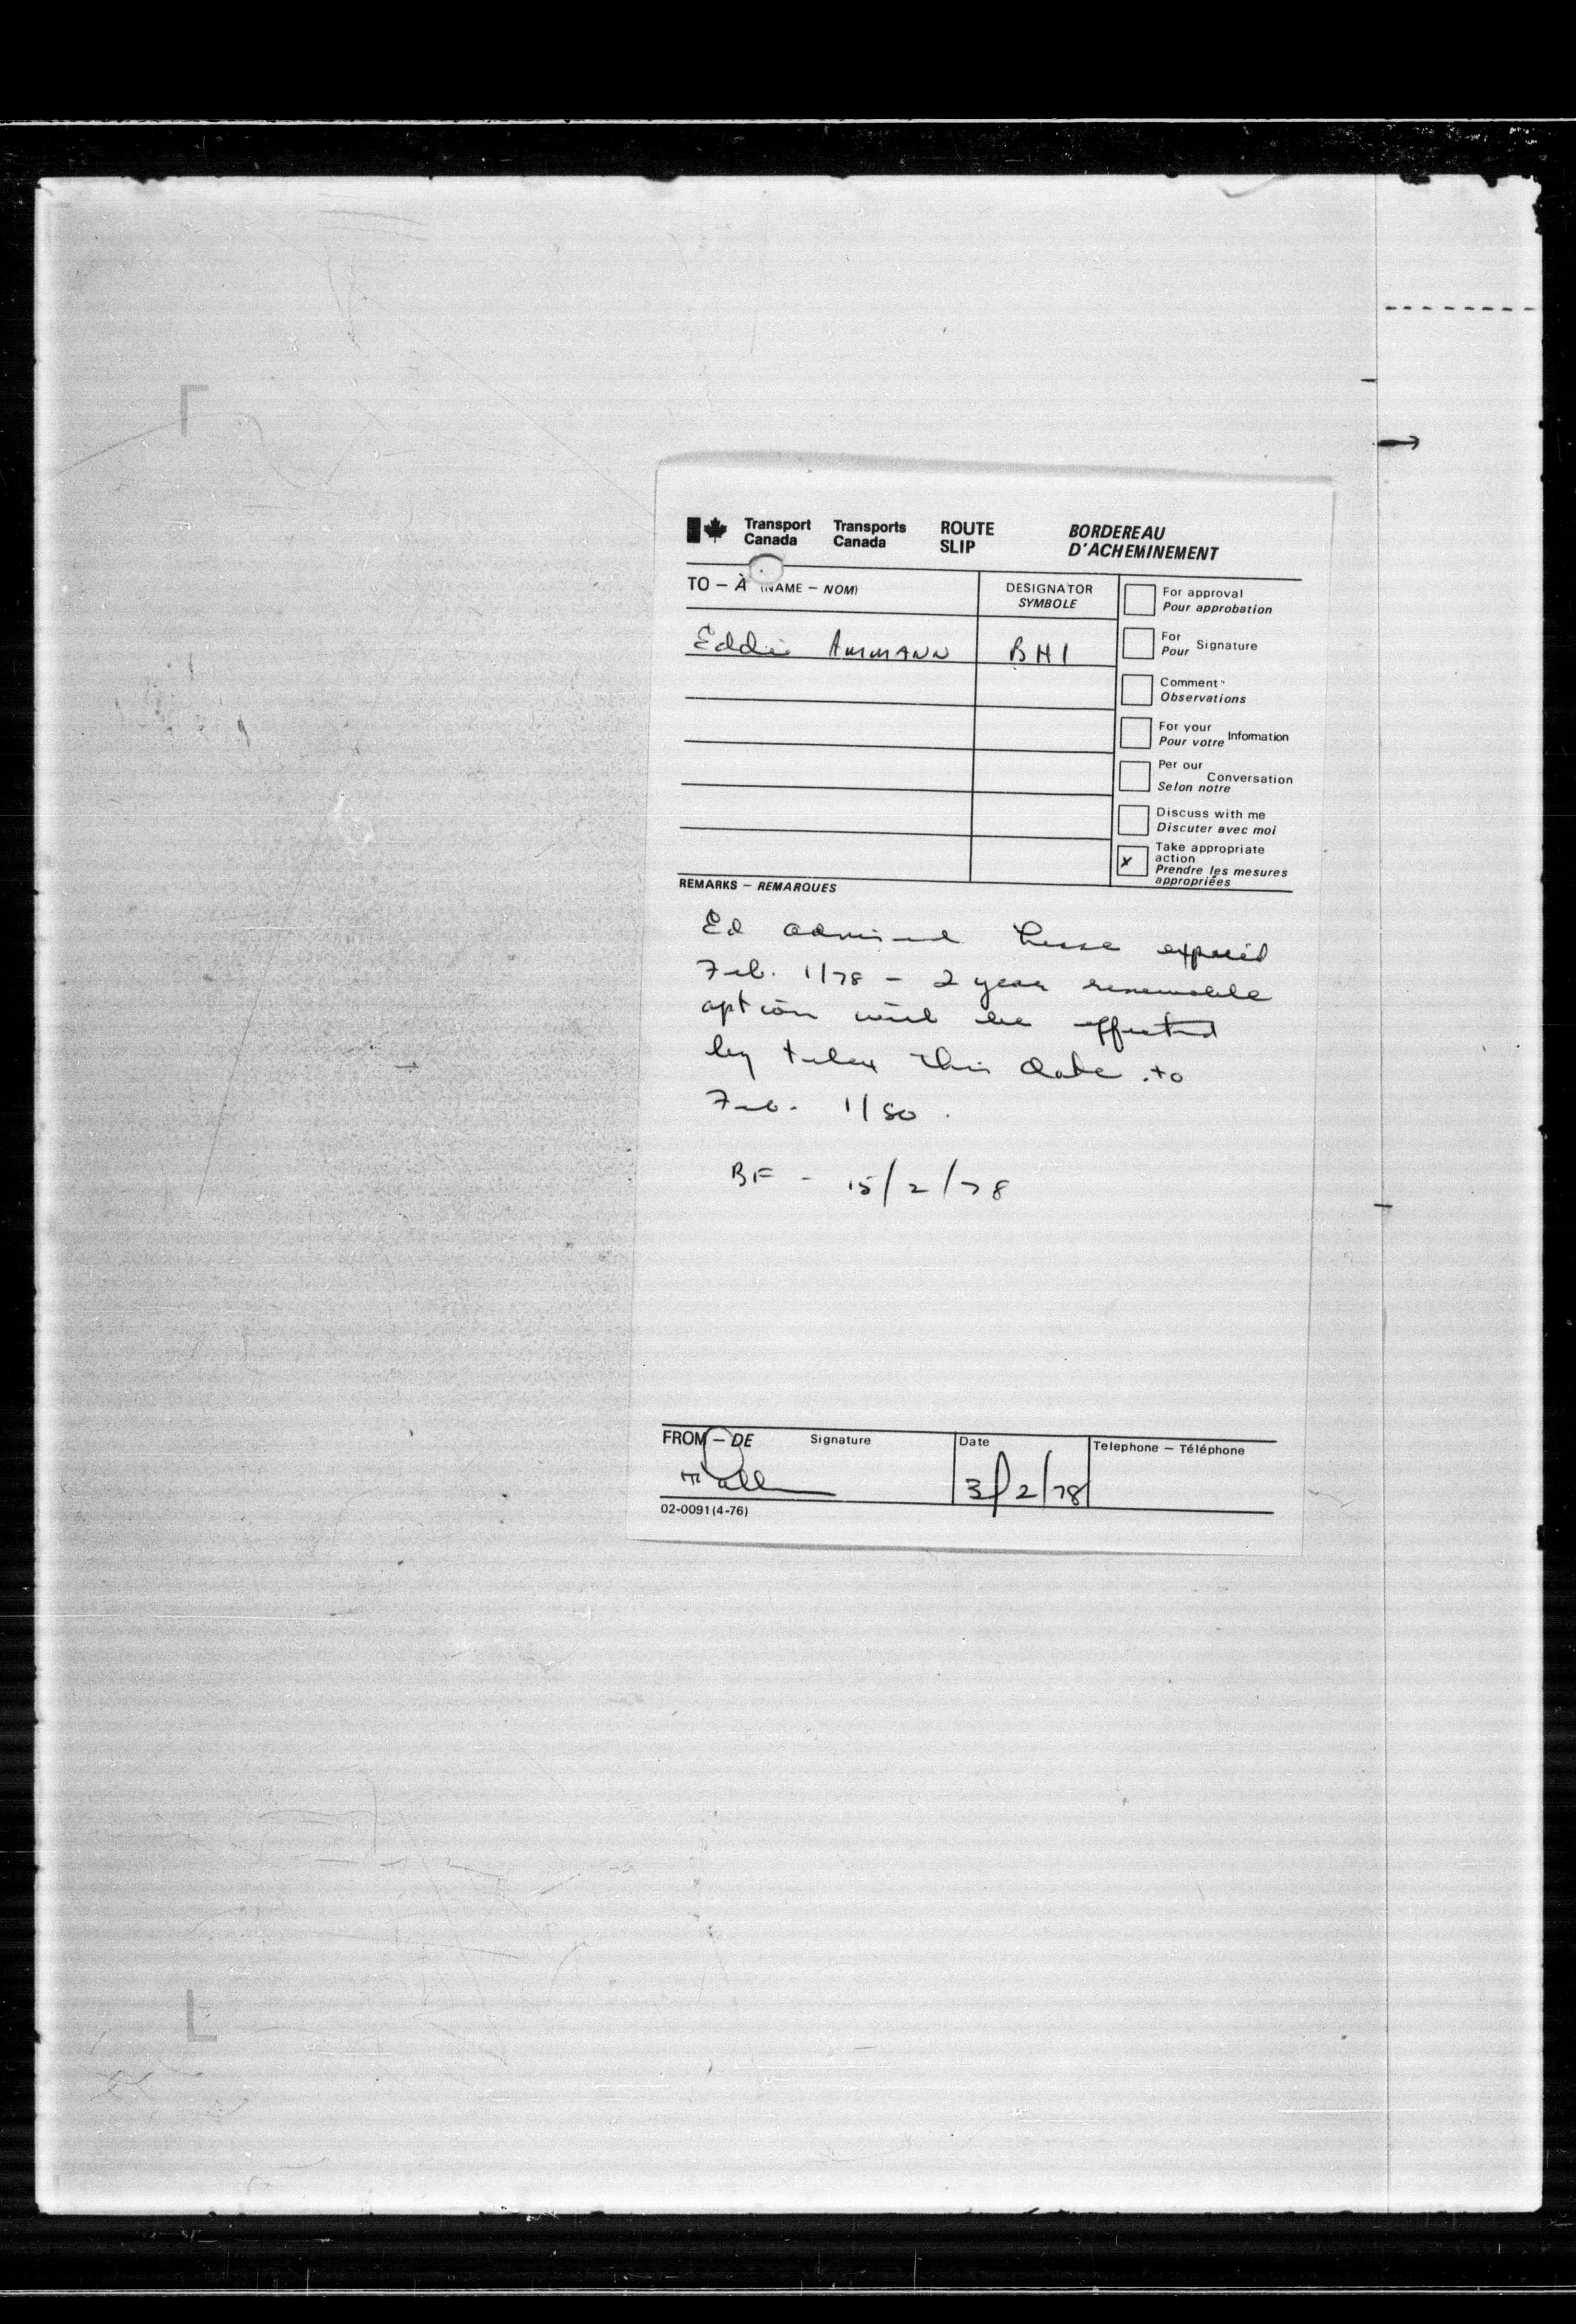 Transport Canada Transports Canada ROUTE SLIP BORDEREAU D'ACHEMINEMENT
TO – À (NAME – NOM) DESIGNATOR SYMBOLE
Eddie AMMANN BHI
For approval
Pour approbation
For Pour Signature
Comment
Observations
For your Pour votre Information
Per our Selon notre Conversation
Discuss with me
Discuter avec moi
x Take appropriate
action
Prendre les mesures
appropriées
REMARKS – REMARQUES
Ed expired
Feb. 1/78 – 2 year renewable
option will be effected
by telex this date to
Feb. 1/80.
BF - 15/2/78
FROM – DE Signature Date Telephone – Téléphone
3/2/78
02-0091 (4-76)